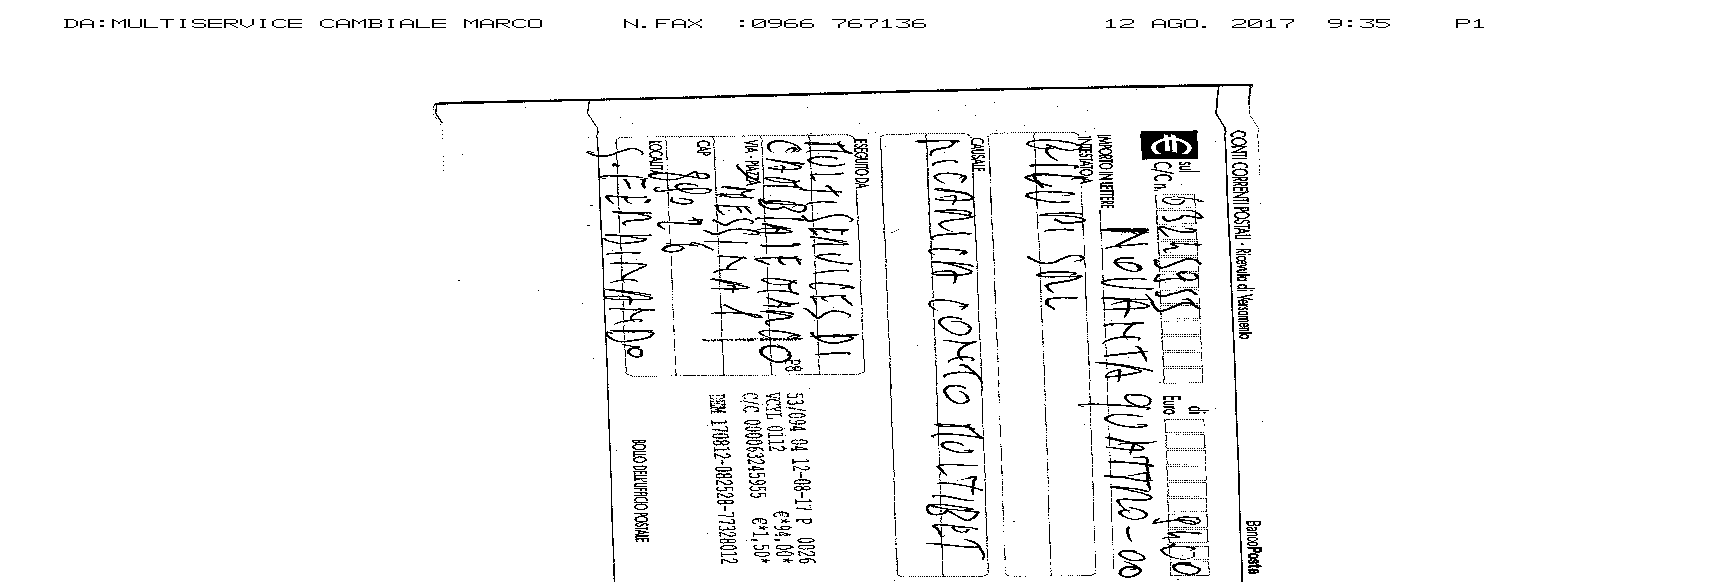 DA:MULTISERVICE CAMBIALE MARCO N.FAX :0966 767136 12 AGO. 2017 9:35 P1
CONTI CORRENTI POSTALI - Ricevuta di Versamento BancoPosta
€ sul C/C n. 63245955 di Euro 94,00
IMPORTO IN LETTERE NOVANTAQUATTRO-00
INTESTATO A
SRL
CAUSALE
RICARICA CONTO MULTIBET
ESEGUITO DA
MULTISERVICES DI
CAMBIALE MARCO
VIA - PIAZZA
MESSINA 1
CAP
89026
LOCALITÀ
S. FERDINANDO
53/094 04 12-08-17 P 0026
VCYL 0112 €*94,00*
C/C 000063245955 €*1,50*
170812-082528-77328012
BOLLO DELL'UFFICIO POSTALE